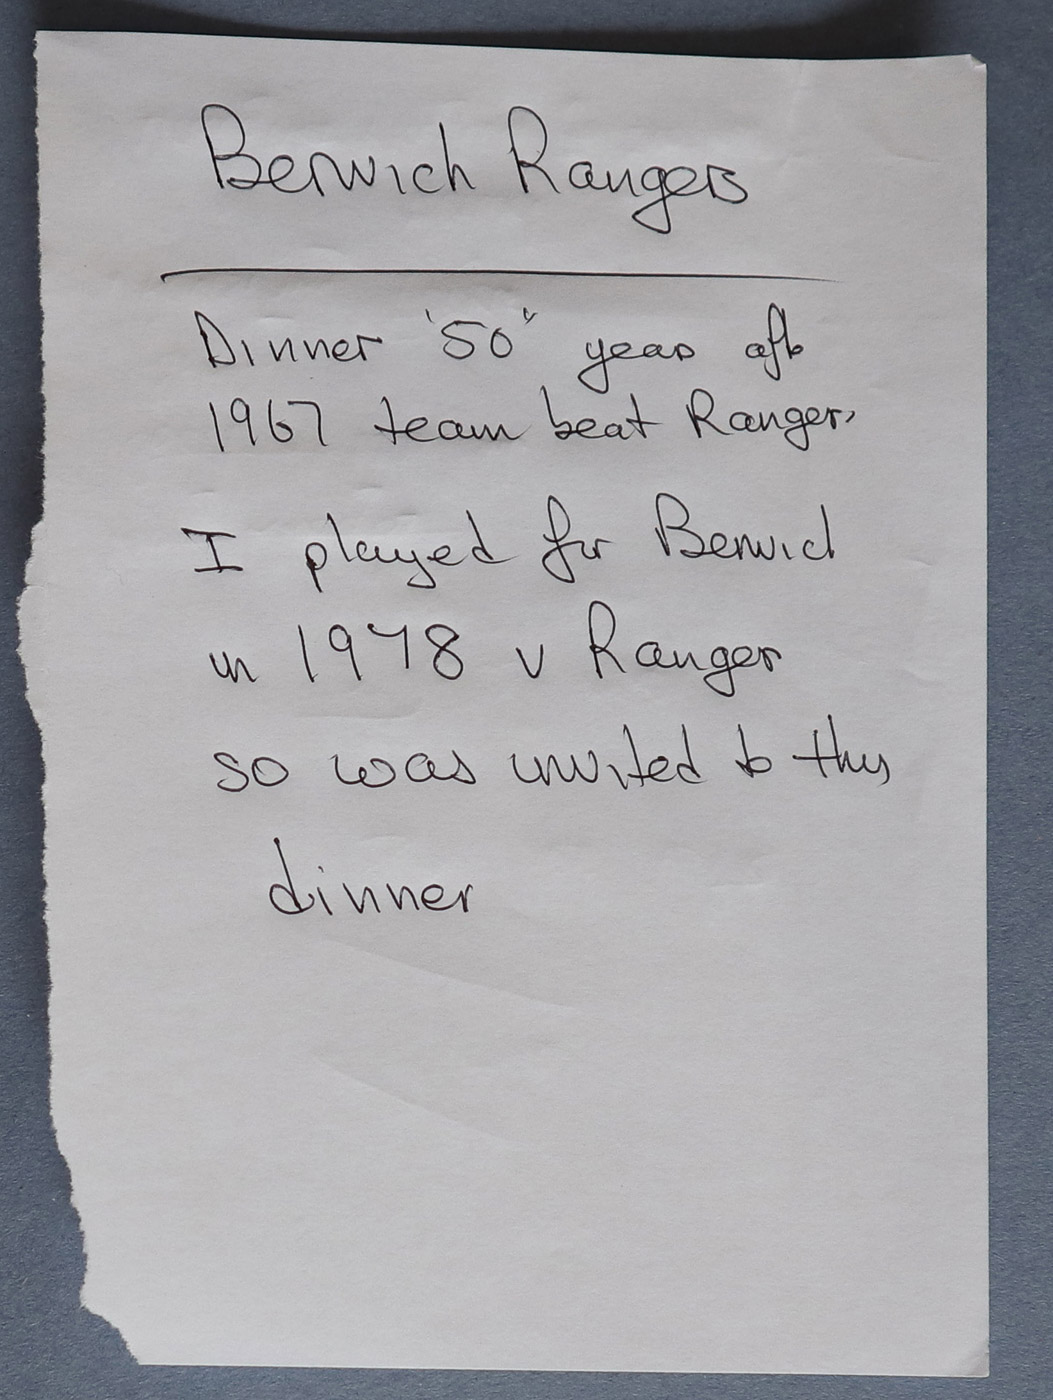 Berwick Rangers
Dinner '50" years after
1967 team beat Rangers
I played for Berwick
in 1978 v Rangers
so was invited to this
dinner